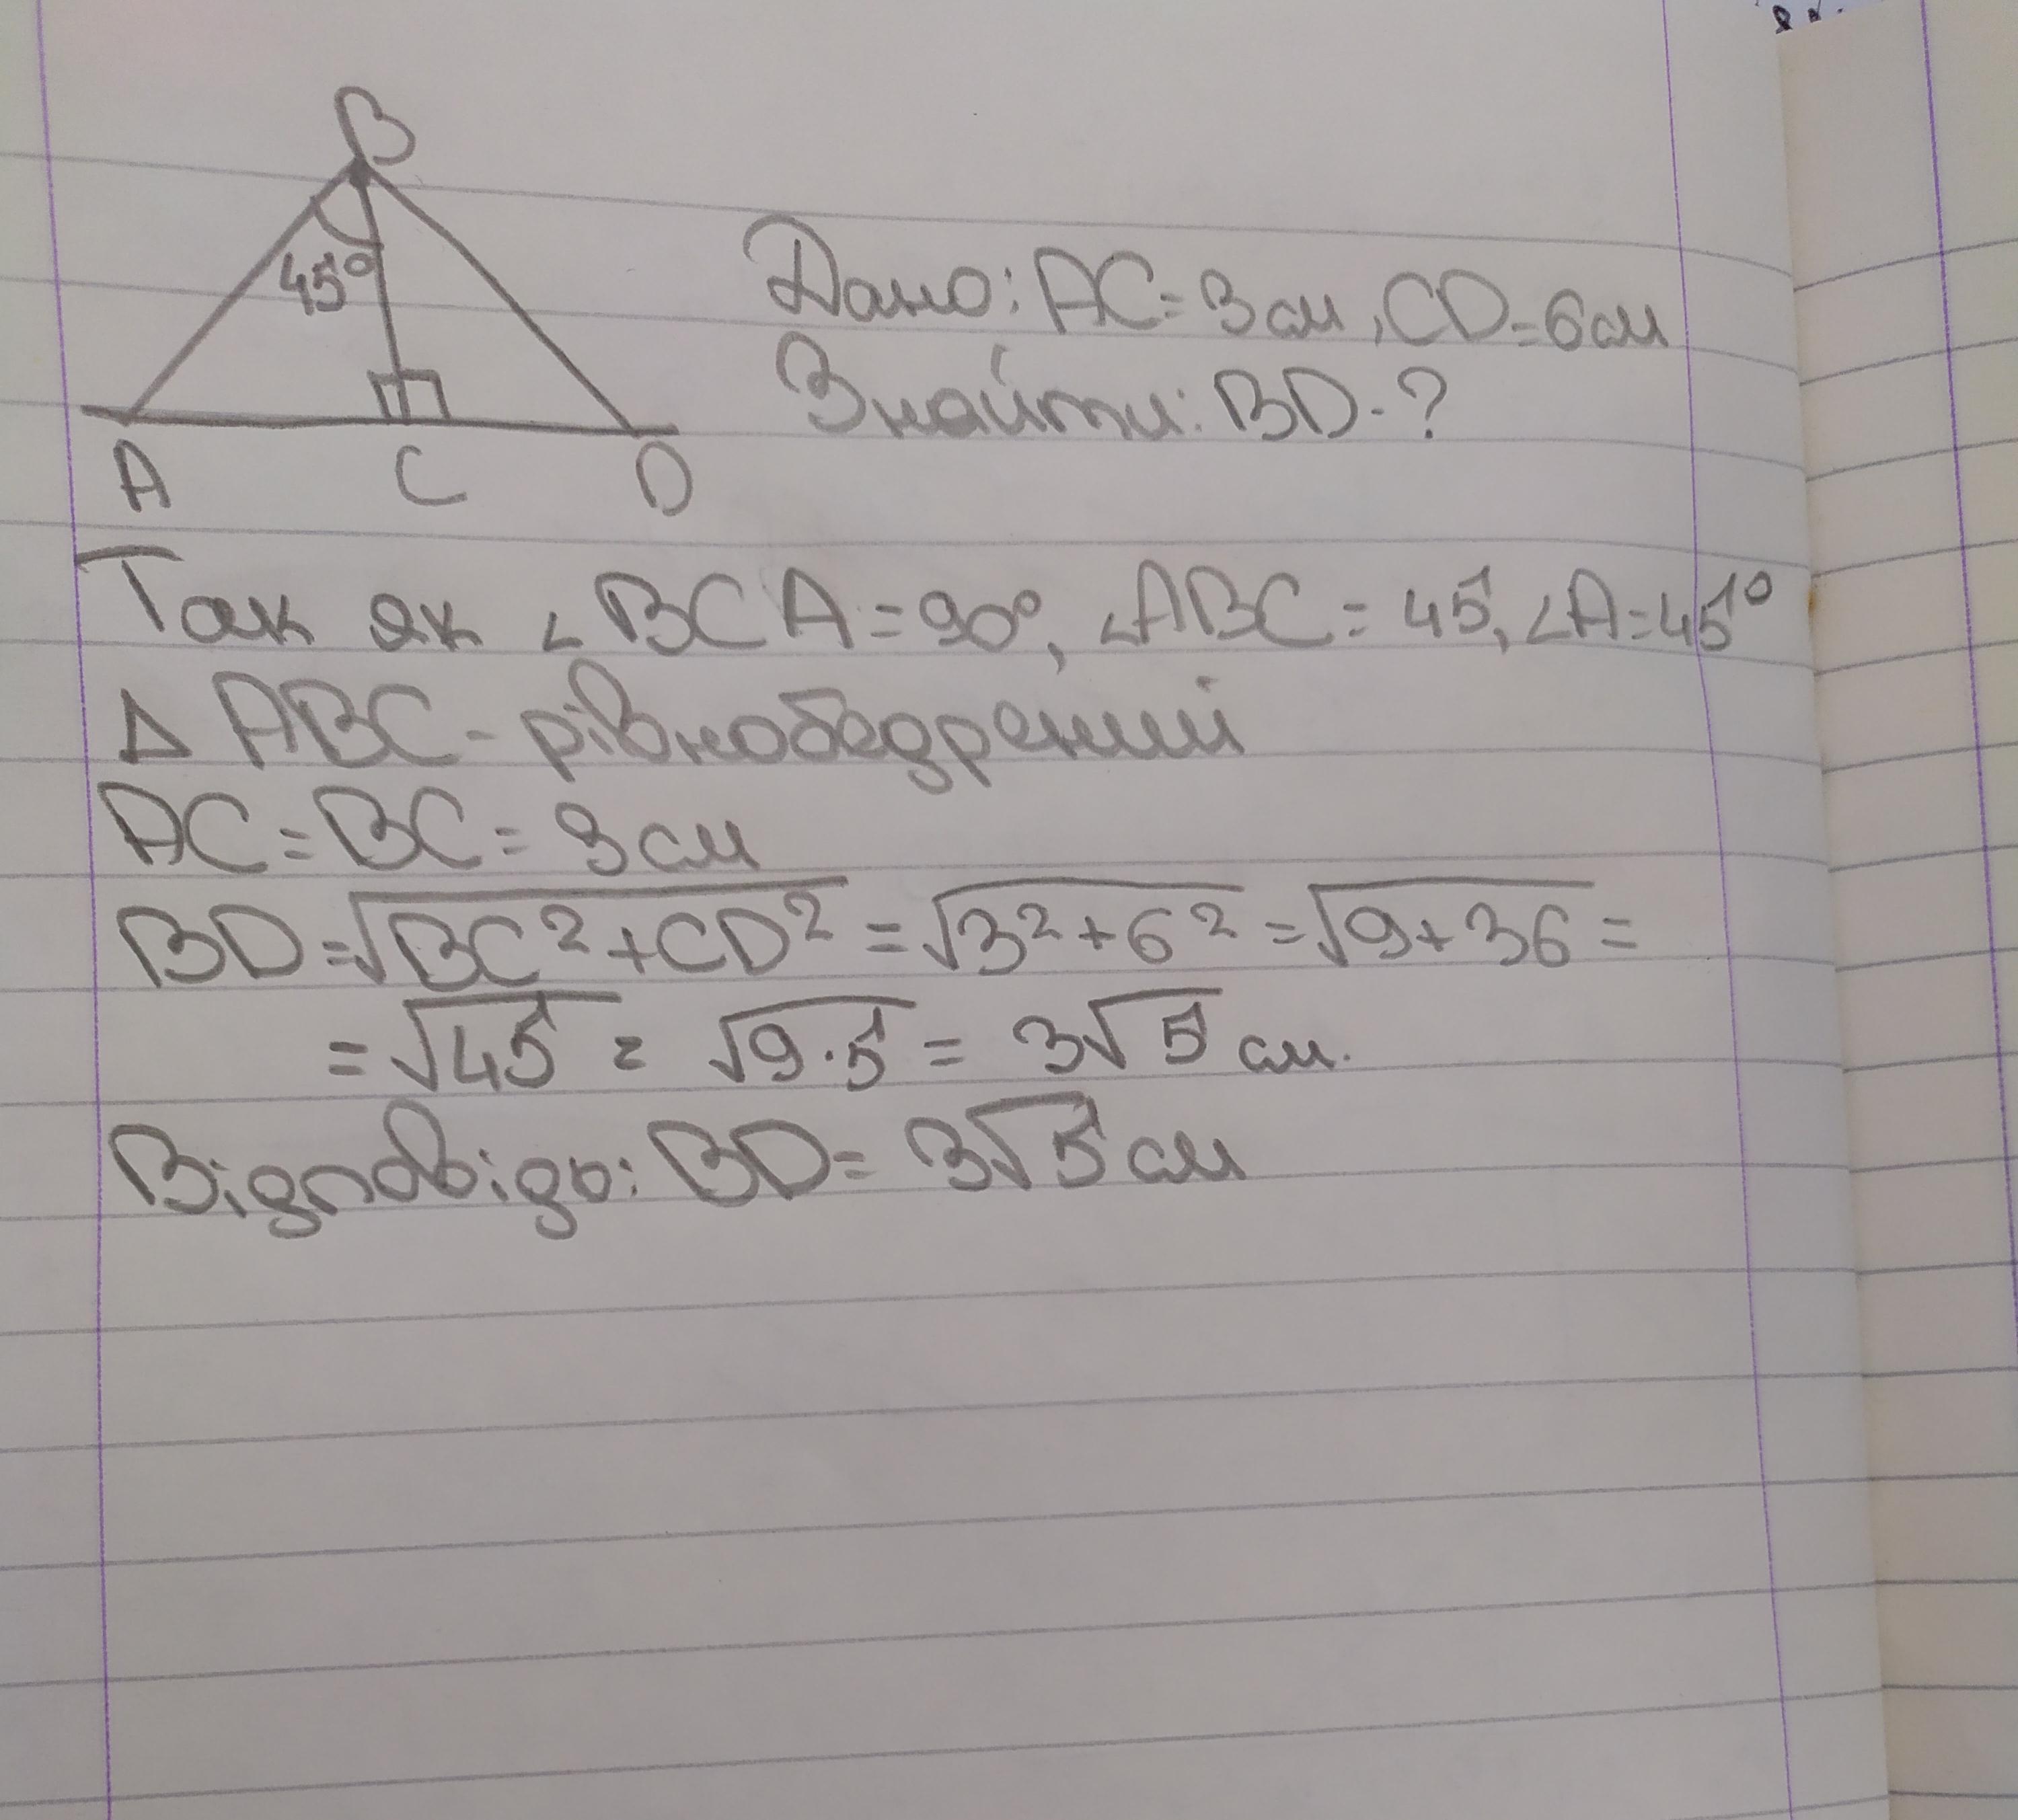 B
45°
A C D
Дано: AC = 3 см, CD = 6 см
Знайти: BD - ?
Так як ∠BCA = 90°, ∠ABC = 45, ∠A = 45°
Δ ABC - рівнобедрений
AC = BC = 3 см
BD = √BC² + CD² = √3² + 6² = √9 + 36 =
= √45 = √9 · 5 = 3√5 см.
Відповідь: BD = 3√5 см